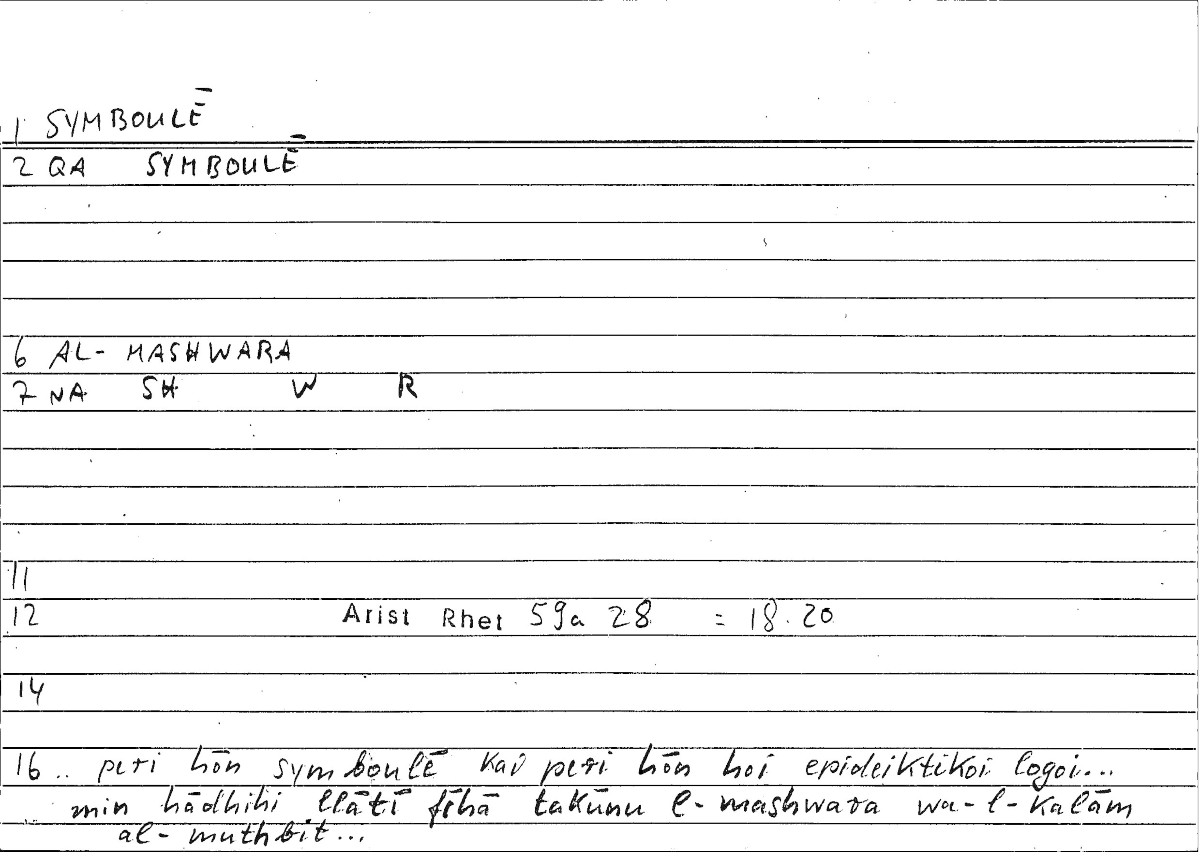 1 SYMBOULĒ
2 QA SYMBOULĒ
6 AL-MASHWARA
7 NA SH W R
11
12 Arist Rhet 59a 28 = 18.20
14
16 .. peri hōn symboulē kai peri hōn hoi epideiktikoi logoi...
min hādhihi llātī fīhā takūnu l-mashwara wa-l-kalām
al-muthbit...